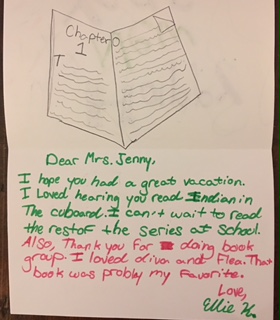 Chapter
1
T
Dear Mrs. Jenny,
I hope you had a great vacation.
I Loved hearing you read Indian in
The cuboard. I can't wait to read
the restof the series at School.
Also, Thank you for doing book
group. I loved oliva and Flea. That
book was probly my favorite.
Love,
Ellie K.